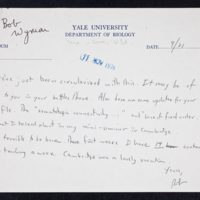 Bob
Wyman
YALE UNIVERSITY
DEPARTMENT OF BIOLOGY
DATE 9/21
NOV 1976
I've just been circularized with this. It may be of
to you in your battles there. Also here are some updates for your
file. The "somatotopic connectivity..." out
but I talked about in my mini-seminar in Cambridge.
terrible to be home. These first weeks I have
teaching a course. Cambridge was a lovely vacation.
Yours,
Bob